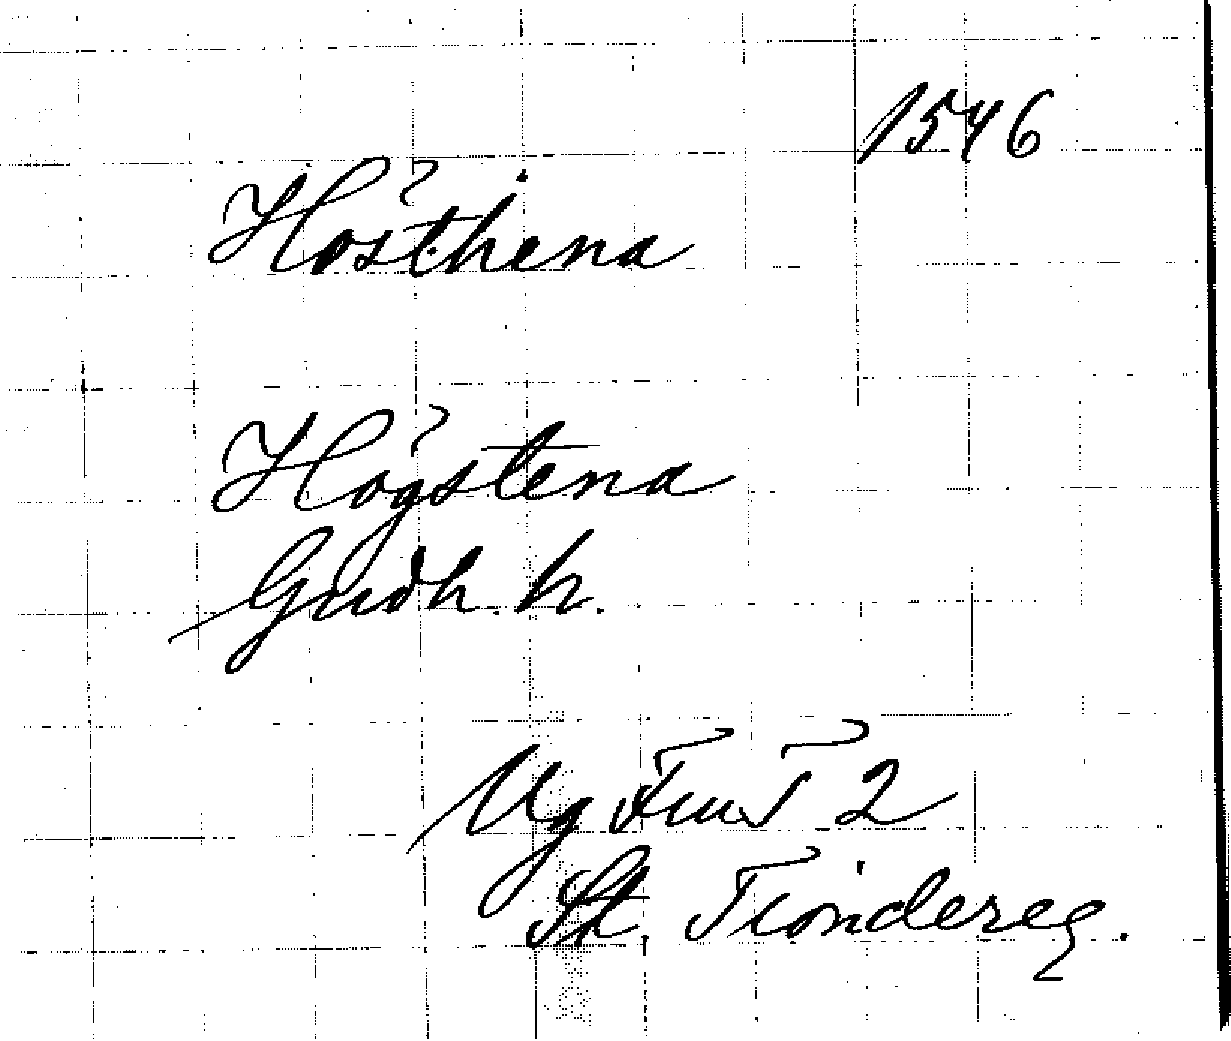 1546
Hösthena
Högstena
Gudh. h.
Vg FruT 2
St. Tiondereg.